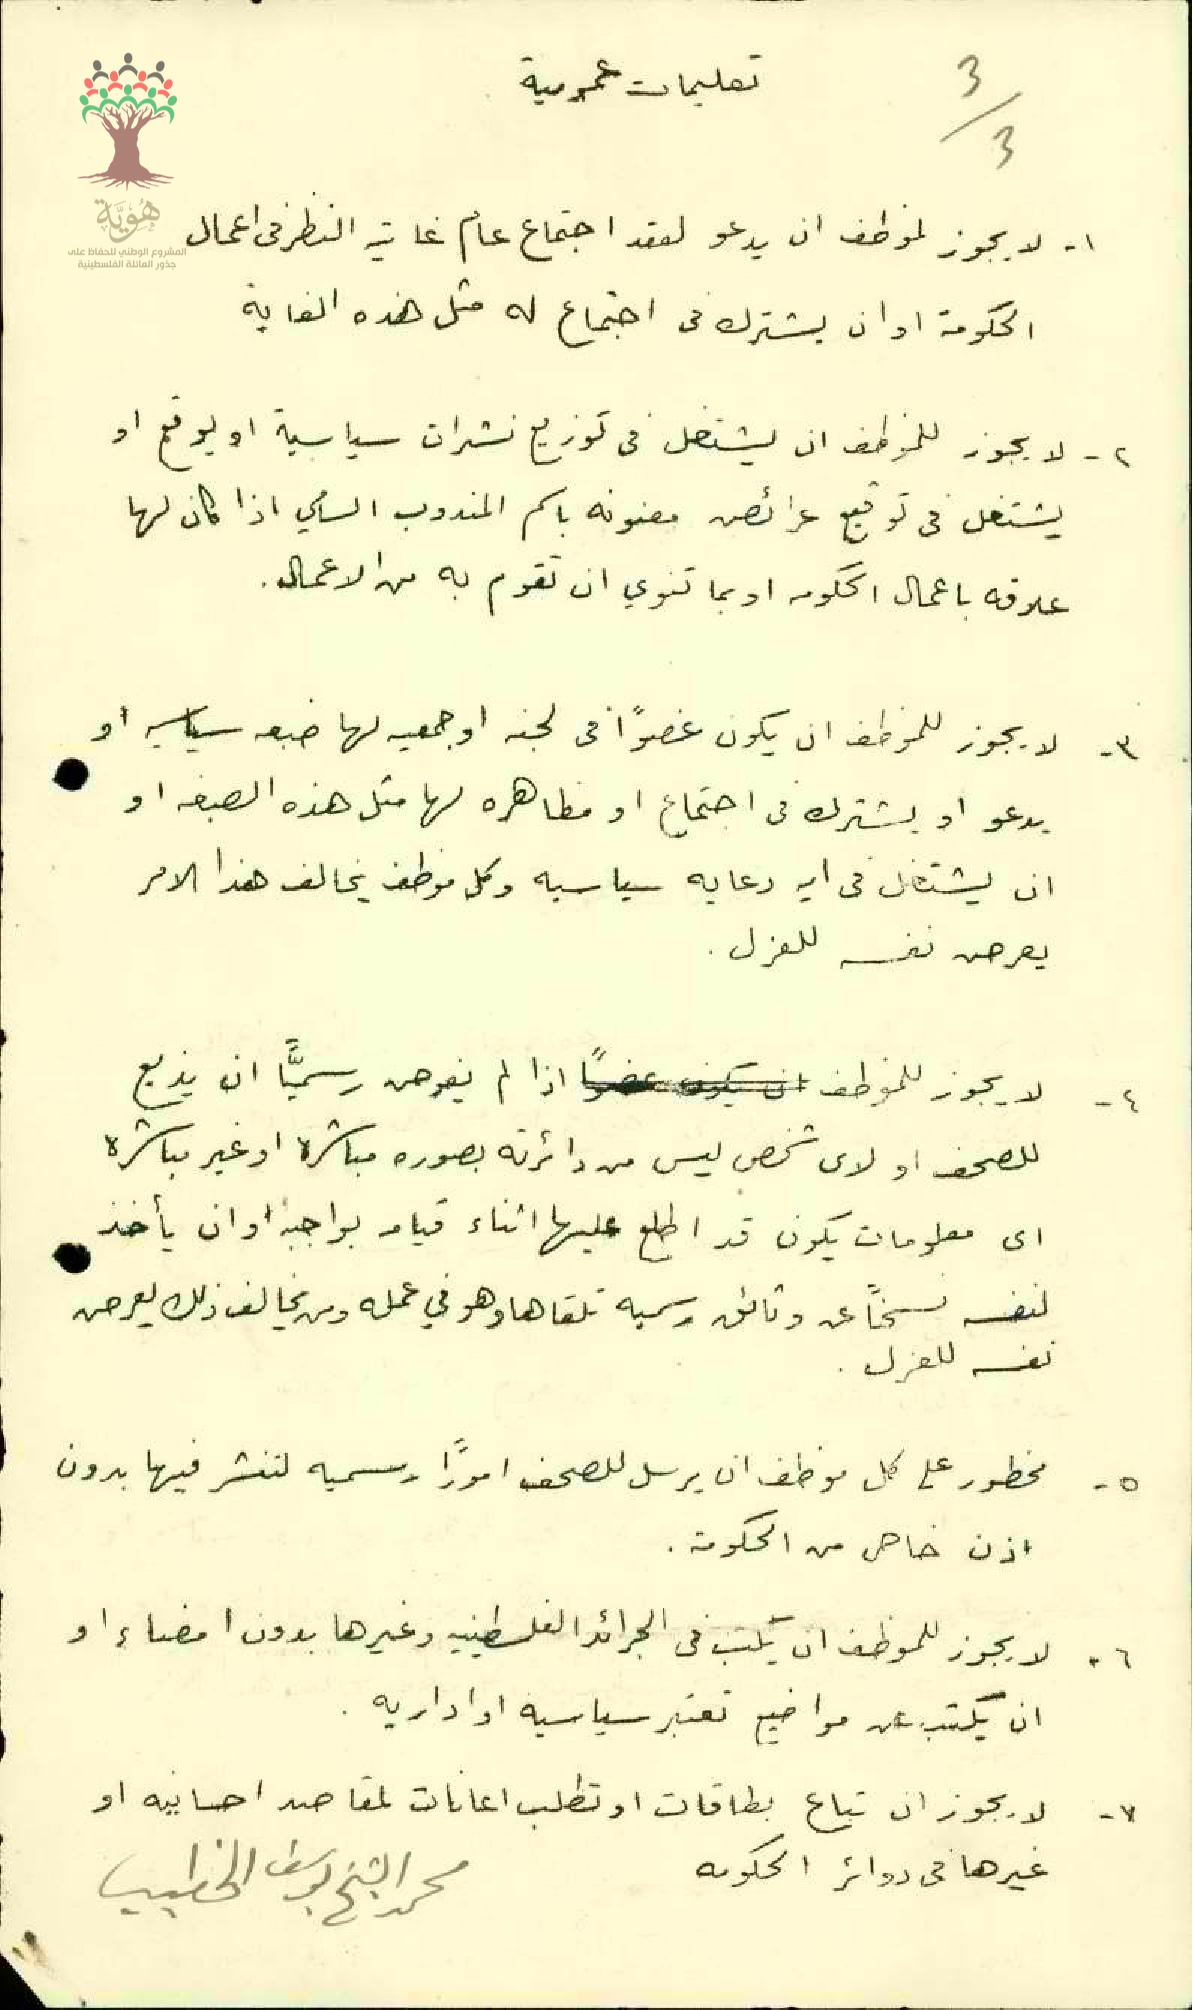 تعليمات عمومية
3/3
هُوِيَّة
المشروع الوطني للحفاظ على
جذور العائلة الفلسطينية
١- لا يجوز لموظف ان يدعو لعقد اجتماع عام غايته النظر في اعمال
الحكومة او ان يشترك في اجتماع له مثل هذه الغاية
٢- لا يجوز للموظف ان يشتغل في توزيع نشرات سياسية او يوقع او
يشتغل في توقيع عرائض معنونه باسم المندوب السامي اذا كان لها
علاقه باعمال الحكومه او بما تنوي ان تقوم به من الاعمال.
٣- لا يجوز للموظف ان يكون عضوًا في لجنه او جمعيه لها صبغه سياسيه او
يدعو او يشترك في اجتماع او مظاهره لها مثل هذه الصبغه او
ان يشتغل في ايه دعايه سياسيه وكل موظف يخالف هذا الامر
يعرض نفسه للعزل.
٤- لا يجوز للموظف ان يكون عضوًا اذا لم يفوض رسميًّا ان يذيع
للصحف او لاى شخص ليس من دائرته بصوره مباشرة او غير مباشرة
اى معلومات يكون قد اطلع عليها اثناء قيامه بواجبه او ان يأخذ
لنفسه نسخًا عن وثائق رسميه تلقاها وهو في عمله ومن يخالف ذلك يعرض
نفسه للعزل.
٥- محظور على كل موظف ان يرسل للصحف امورًا رسميه لتنشر فيها بدون
اذن خاص من الحكومة.
٦- لا يجوز للموظف ان يكتب في الجرائد الفلسطينيه وغيرها بدون امضاء او
ان يكتب عن مواضيع تعتبر سياسيه او اداريه.
٧- لا يجوز ان تباع بطاقات او تطلب اعانات لمقاصد احسانيه او
غيرها في دوائر الحكومه
محمد الشيخ يوسف الخطيب